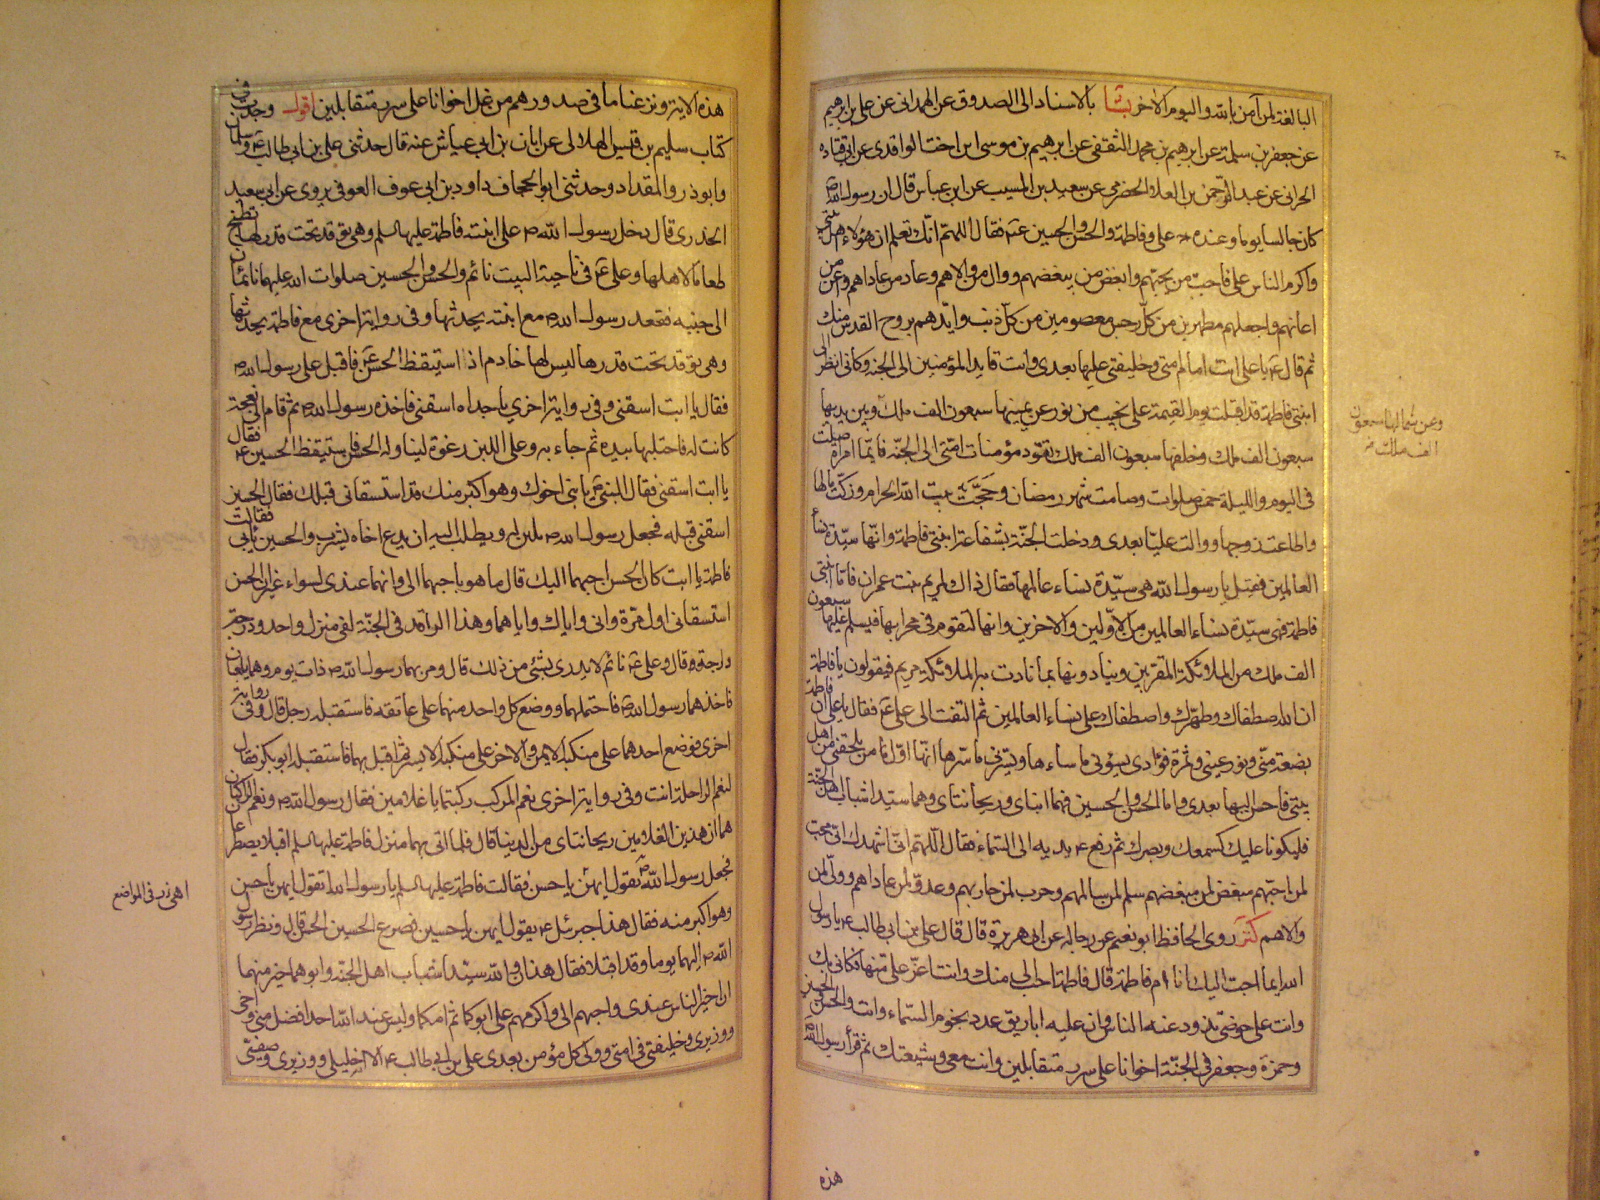 البالغة لمن آمن بالله واليوم الاخر بشا بالاسناد الى الصدوق عن الهمدانى عن على بن ابرهيم
عن جعفر بن سلمة عن ابرهيم بن محمد الثقفى عن ابرهيم بن موسى ابن اخت الواقدى عن ابى قتاده
الحرانى عن عبد الرحمن بن العلاء الحضرمى عن سعيد بن المسيب عن ابن عباس قال ان رسول الله ص
كان جالسا يوما وعنده على وفاطمة والحسن والحسين ع فقال اللهم انك تعلم ان هؤلاء اهل بيتى
واكرم الناس على فاحب من يحبهم وابغض من يبغضهم ووال من والاهم وعاد من عاداهم واعن من
اعانهم واجعلهم مطهرين من كل رجس معصومين من كل ذنب وايدهم بروح القدس منك
ثم قال ع يا على انت امام امتى وخليفتى عليها بعدى وانت قايد المؤمنين الى الجنة وكانى انظر الى
ابنتى فاطمة قد اقبلت يوم القيمة على نجيب من نور عن يمينها سبعون الف ملك وبين يديها
سبعون الف ملك وخلفها سبعون الف ملك تقود مؤمنات امتى الى الجنة فايما امراة صلت
فى اليوم والليلة خمس صلوات وصامت شهر رمضان وحجت بيت الله الحرام وزكت مالها
واطاعت زوجها ووالت عليا بعدى ودخلت الجنة بشفاعة ابنتى فاطمة وانها سيدة نساء
العالمين فقيل يا رسول الله هى سيدة نساء عالمها فقال ذاك لمريم بنت عمران فاما ابنتى
فاطمة فهى سيدة نساء العالمين من الاولين والاخرين وانها لتقوم فى محرابها فيسلم عليها سبعون
الف ملك من الملائكة المقربين وينادونها بما نادت به الملائكة مريم فيقولون يا فاطمة
ان الله اصطفاك وطهرك واصطفاك على نساء العالمين ثم التفت الى على ع فقال يا على ان فاطمة
بضعة منى ونور عينى وثمرة فؤادى يسؤنى ما ساءها ويسرنى ما سرها انها اول من يلحقنى من اهل
بيتى فاحسن اليها بعدى واما الحسن والحسين فهما ابناى وريحانتاى وهما سيدا شباب اهل الجنة
فليكونا عليك كسمعك وبصرك ثم رفع ع يديه الى السماء فقال اللهم انى اشهدك انى محب
لمن احبهم مبغض لمن يبغضهم سلم لمن سالمهم وحرب لمن حاربهم وعدو لمن عاداهم وولى لمن
والاهم كنز روى الحافظ ابو نعيم عن رجاله عن ابى هريرة قال قال على بن ابى طالب ع يا رسول
الله ايما احب اليك انا ام فاطمة قال فاطمة احب الى منك وانت اعز على منها وكانى بك
وانت على حوضى تذود عنه الناس وان عليه اباريق عدد نجوم السماء وانت والحسن والحسين
وحمزة وجعفر فى الجنة اخوانا على سرر متقابلين وانت معى وشيعتك ثم قرأ رسول الله ص
وعن شمالها سبعون
الف ملك
هذه
هذه الاية ونزعنا ما فى صدورهم من غل اخوانا على سرر متقابلين اقول وجدت فى
كتاب سليم بن قيس الهلالى عن ابان بن ابى عياش عنه قال حدثنى على بن ابى طالب ع وسلمان
وابو ذر والمقداد وحدثنى ابو الحجاف داود بن ابى عوف العوفى يروى عن ابى سعيد
الخدرى قال دخل رسول الله ص على ابنته فاطمة عليها السلم وهى توقد تحت قدر لها تطبخ
طعاما لاهلها وعلى ع فى ناحية البيت نائم والحسن والحسين صلوات الله عليهما نائمان
الى جنبه فقعد رسول الله ص مع ابنته يحدثها وفى رواية اخرى مع فاطمة يحدثها
وهى توقد تحت قدرها ليس لها خادم اذا استيقظ الحسن ع فاقبل على رسول الله ص
فقال يا ابت اسقنى وفى رواية اخرى يا جداه اسقنى فاخذه رسول الله ص ثم قام الى نعجة
كانت له فاحتلبها بيده ثم جاء به وعلى اللبن رغوة ليناوله الحسن فاستيقظ الحسين ع فقال
يا ابت اسقنى فقال النبى ص يا بنى اخوك وهو اكبر منك قد استسقانى قبلك فقال الحسين
اسقنى قبله فجعل رسول الله ص يلين له ويطلب اليه ان يدع اخاه يشرب والحسين يابى فقالت
فاطمة يا ابت كان الحسن احبهما اليك قال ما هو باحبهما الى وانهما عندى لسواء غير ان الحسن
استسقانى اول مرة وانى واياك واياهما وهذا الراقد فى الجنة لفى منزل واحد ودرجة
واحدة قال وعلى ع نائم لا يدرى بشئ من ذلك قال ومر بهما رسول الله ص ذات يوم وهما يلعبان
فاخذهما رسول الله ص فاحتملهما ووضع كل واحد منهما على عاتقه فاستقبله رجل قال وفى رواية
اخرى فوضع احدهما على منكبه الايمن والاخر على منكبه الايسر ثم اقبل بهما فاستقبله ابو بكر فقال
لنعم الراحلة انت وفى رواية اخرى نعم المركب ركبتما يا غلامين فقال رسول الله ص ونعم الراكبان
هما ان هذين الغلامين ريحانتاى من الدنيا قال فلما اتى بهما منزل فاطمة عليها السلم اقبلا يصطرعان
فجعل رسول الله ص يقول ايهن يا حسن فقالت فاطمة عليها السلم يا رسول الله اتقول ايهن يا حسن
وهو اكبر منه فقال هذا جبرئيل ع يقول ايهن يا حسين فصرع الحسين الحسن قال ونظر رسول
الله ص اليهما يوما وقد اقبلا فقال هذان والله سيدا شباب اهل الجنة وابوهما خير منهما
ان اخير الناس عندى واحبهم الى واكرمهم على ابوكما ثم امكما وليس عند الله احد افضل منى واخى
ووزيرى وخليفتى فى امتى وولى كل مؤمن بعدى على بن ابى طالب ع الا اخليلى ووزيرى وصفيى